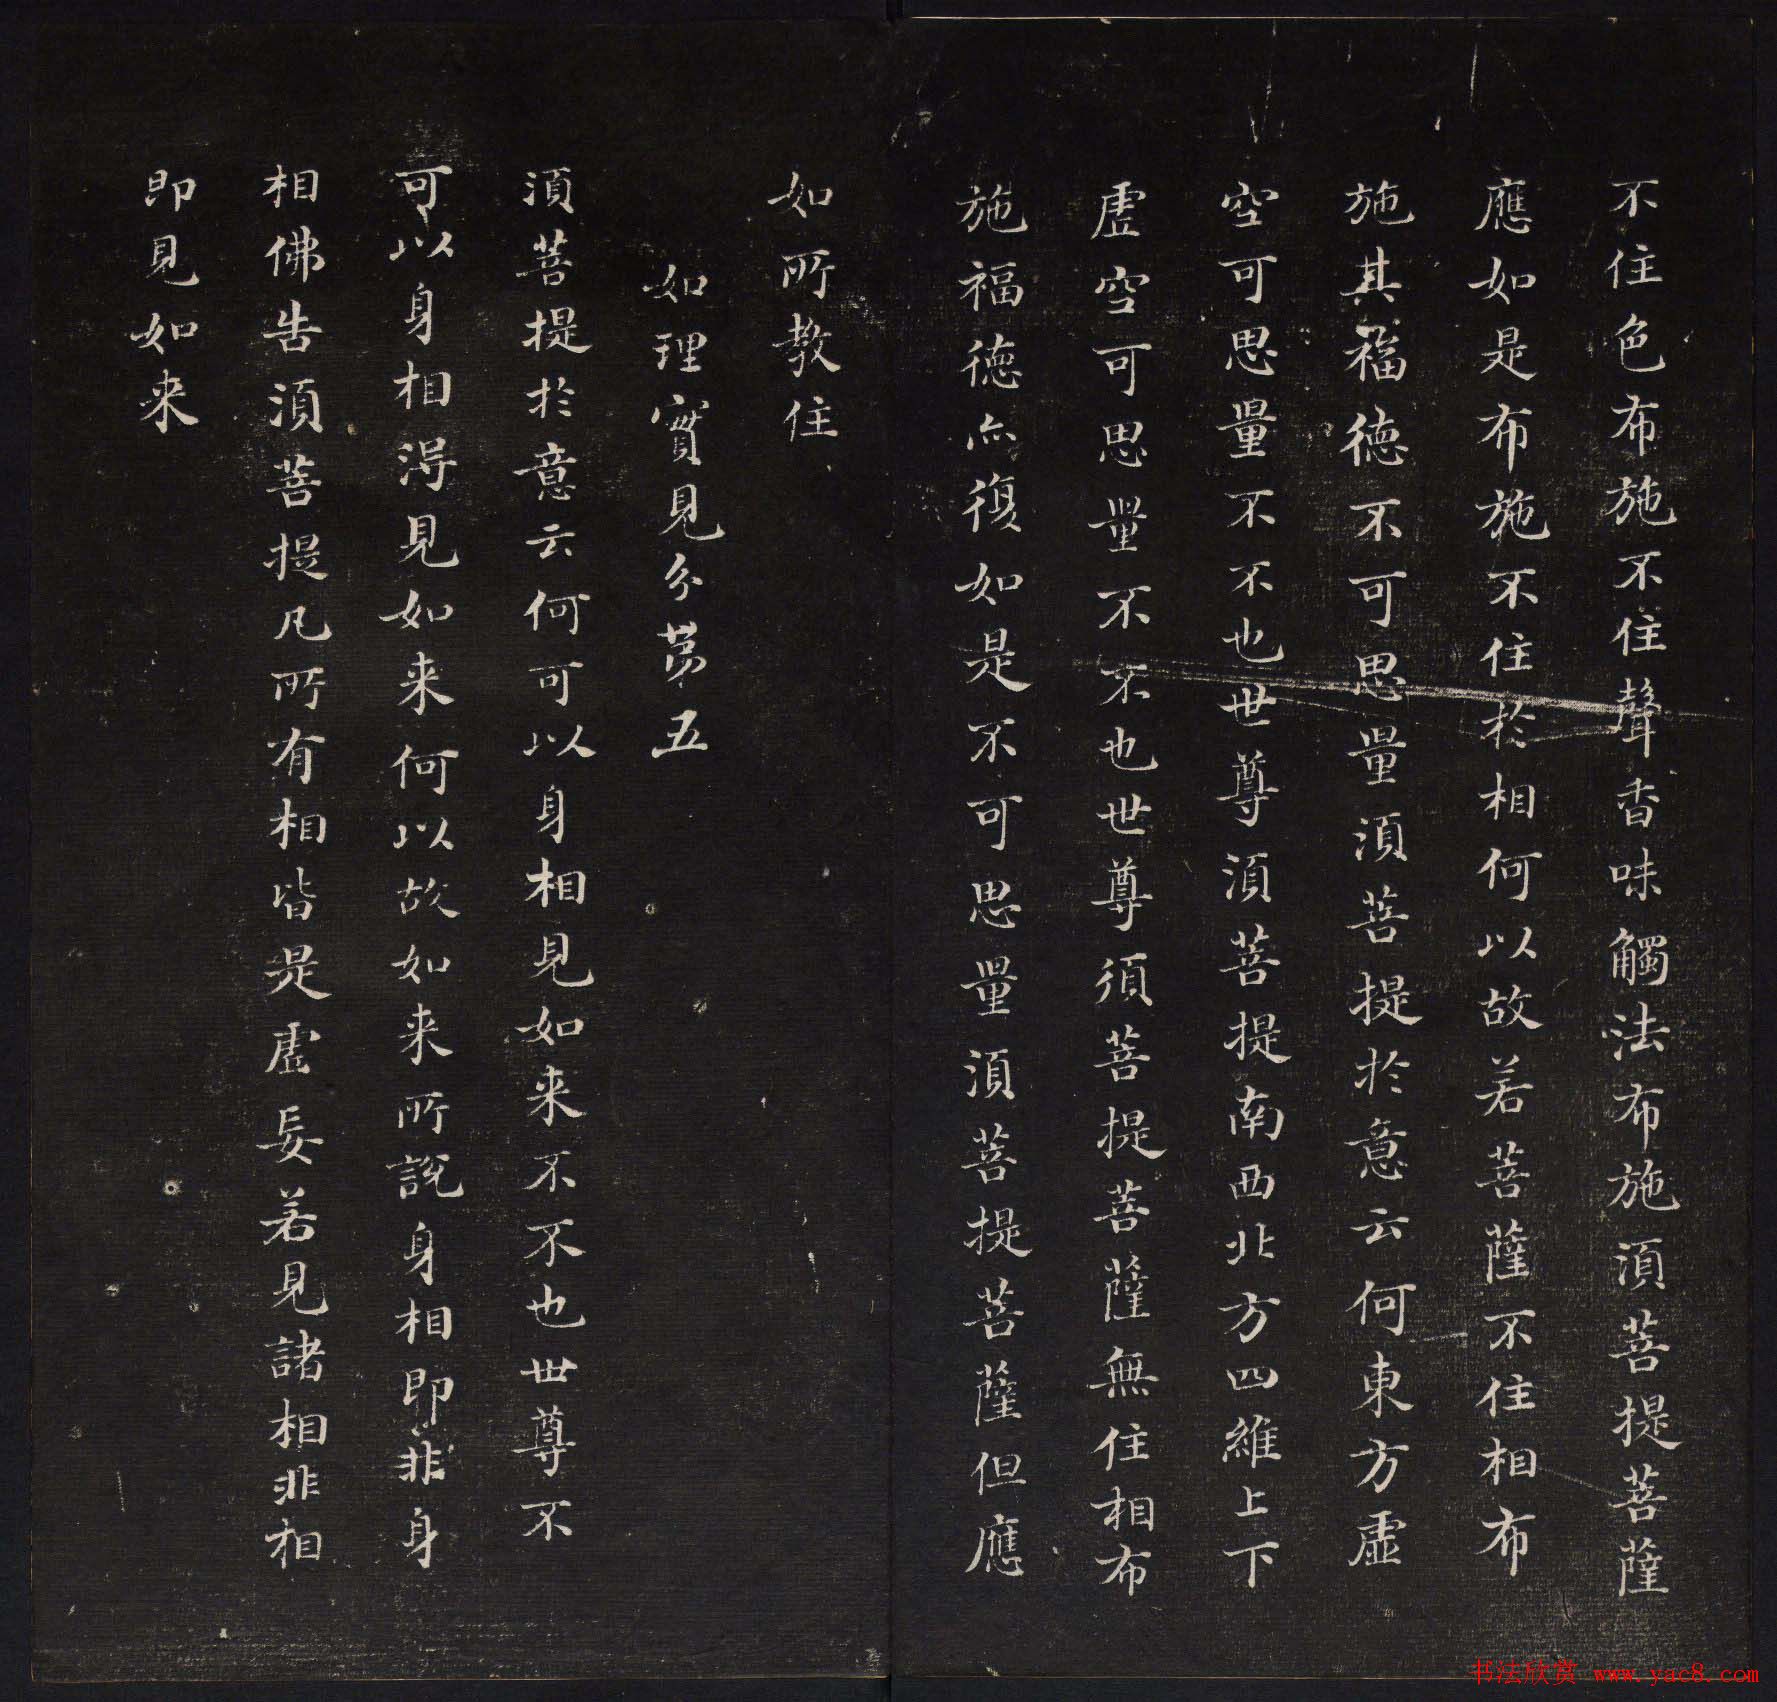 不住色布施不住聲香味觸法布施須菩提菩薩
應如是布施不住於相何以故若菩薩不住相布
施其福德不可思量須菩提於意云何東方虛
空可思量不不也世尊須菩提南西北方四維上下
虛空可思量不不也世尊須菩提菩薩無住相布
施福德亦復如是不可思量須菩提菩薩但應
如所教住
如理實見分第五
須菩提於意云何可以身相見如来不不也世尊不
可以身相得見如来何以故如来所說身相即非身
相佛告須菩提凡所有相皆是虛妄若見諸相非相
即見如来
书法欣赏 www.yac8.com